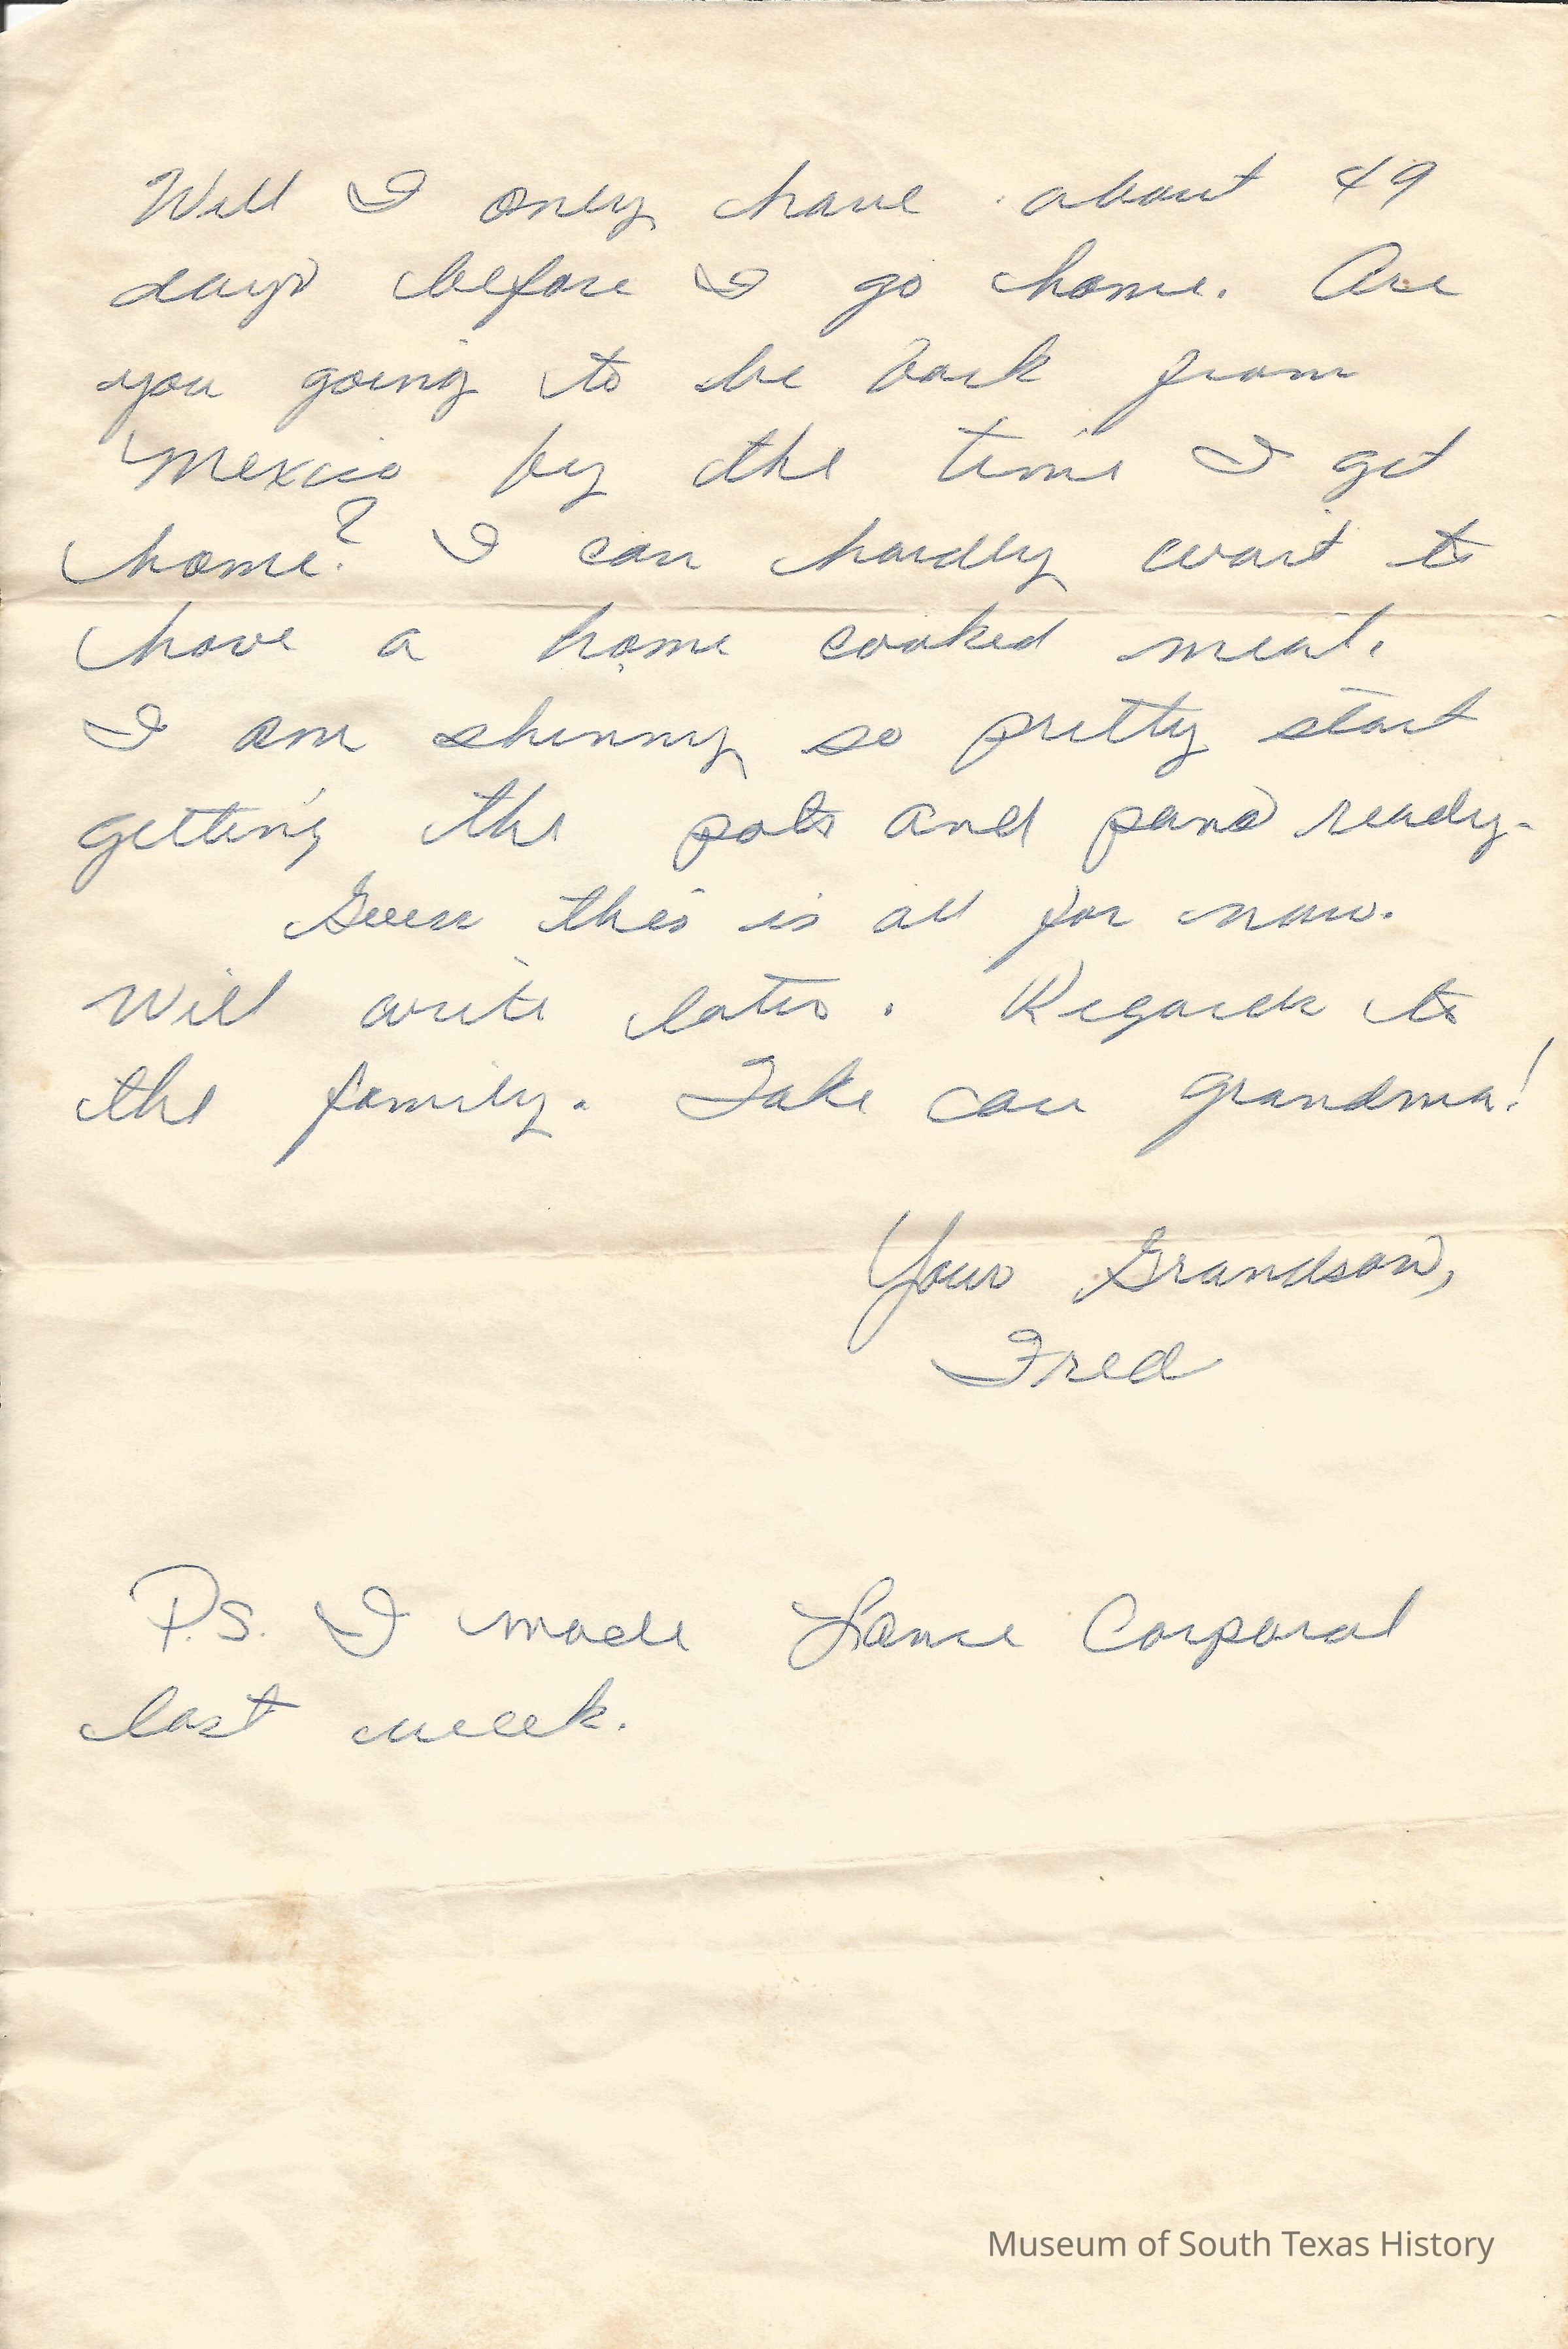 Well I only have about 49
days before I go home. Are
you going to be back from
Mexico by the time I get
home? I can hardly wait to
have a home cooked meal.
I am skinny so pretty start
getting the pots and pans ready.
Guess this is all for now.
Will write later. Regards to
the family. Take care grandma!
Your Grandson,
Fred
P.S. I made Lance Corporal
last week.
Museum of South Texas History